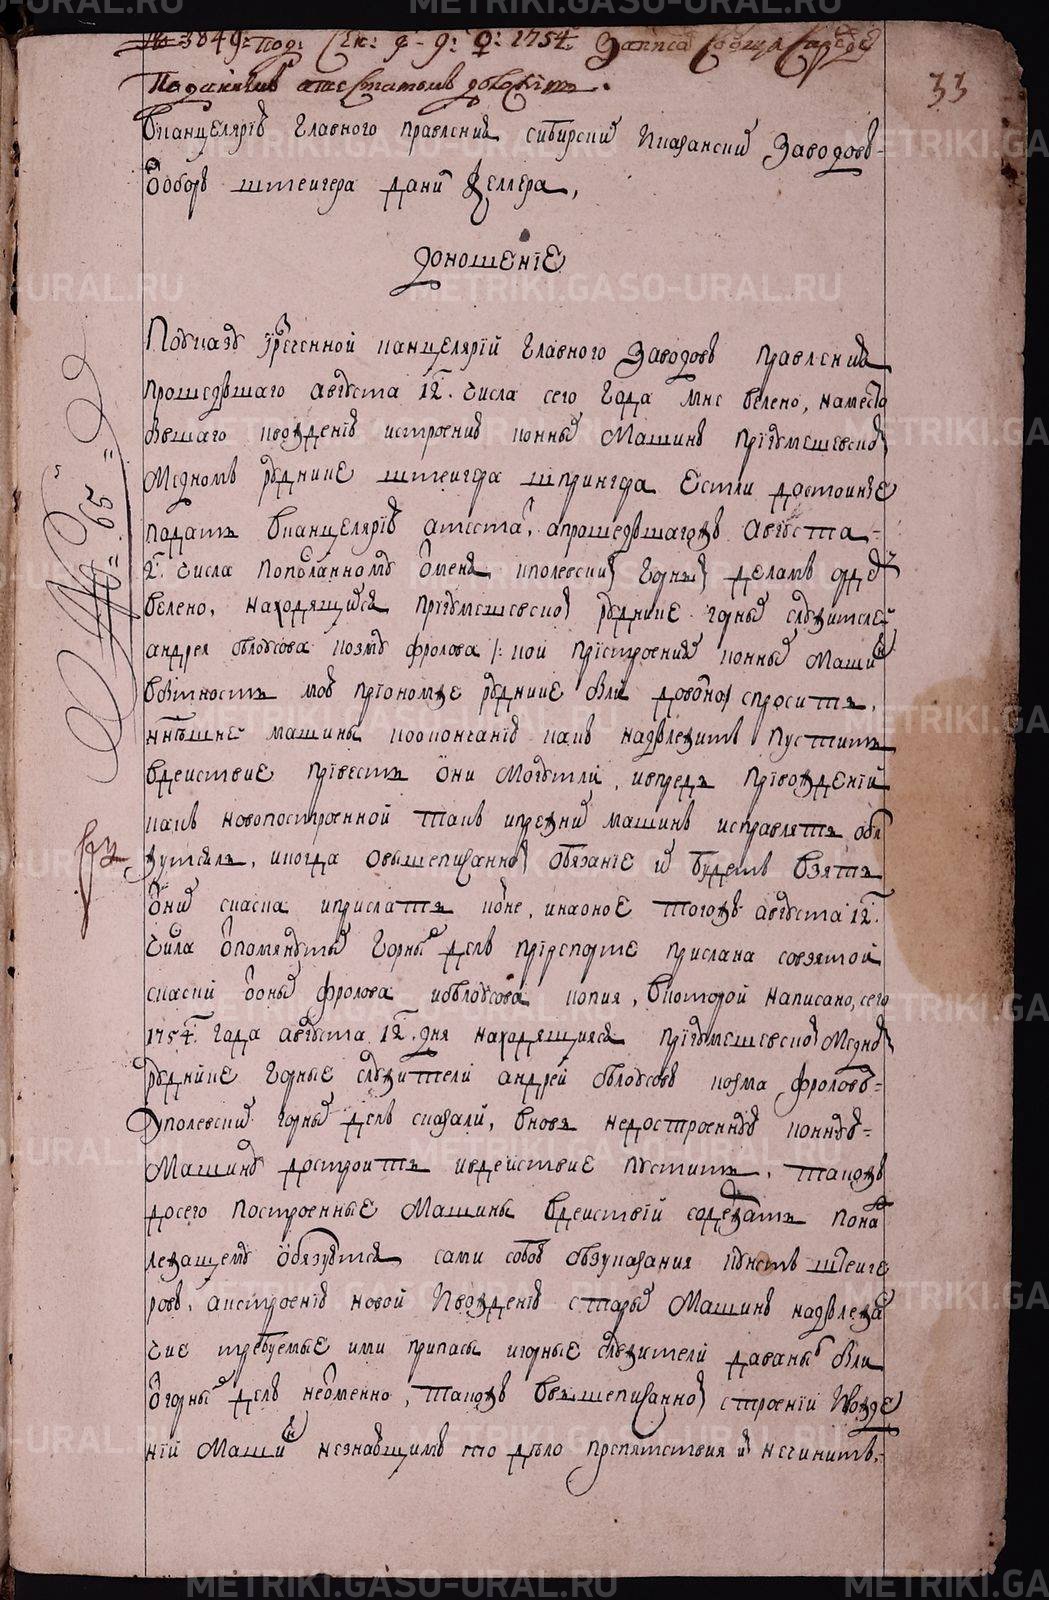 № 3849: под: Сен: 9: 1754. Записав сообща
Поданныи атестатомъ доложить.
33
Вканцелярию Главного правления сибирских и казанских Заводовъ
Отоберъ штейгера Дани Келлера,
доношение
По указу Ея реченной канцелярии Главного Заводовъ правления
прошедшаго августа 12 г. числа сего года мне велено, наместо
бывшаго вождению и строению конных Машинъ при гумешевском
Медномъ руднике штейгера шпрингера Естли достойные
подать в канцелярию атестат, а прошедшагожъ августа
2 г. числа по посланному от меня к полевским горным деламъ орде
велено, находящихся при гумешевском руднике горных служителей
андрея блоусова козму фролова /: кои при строении конных машин
в бытность мою при оном же руднике были довольно / спросить,
нынешние машины по окончанию какъ надлежитъ пустить
в действие привесть они могут ли, и впредь при вождении
какъ новопостроенной такъ и прежних машинъ исправлять обя
жутсяль, и когда о вышеписанном обязание и будетъ взять
с них скаска и прислать ко мне, и на оное тогожъ августа 12 г.
числа от помянутых Горных делъ при репорте прислана со взятой
скаски с оных фролова и блоусова копия, в которой написано, сего
1754 г. года августа 12 г. дня находящияся при гумешевском Медном
руднике Горные служители андрей блоусовъ козма фроловъ
у полевских горных делъ сказали, вновь недостроенную конную
Машину достроить и в действие пустить, такожъ
до сего построенные Машины в действии содержать по на
лежащему обязуются сами собою без указания к тому штейге
ровъ, а к строению новой и вождению старых Машинъ надлежа
щие требуемые ими припасы и горные служители даваны б были
от горных делъ неотменно, такожъ в вышеписанном строении и вожде
нии Машин незнающимъ то дело препятствия им нечинить,
METRIKI.GASO-URAL.RU